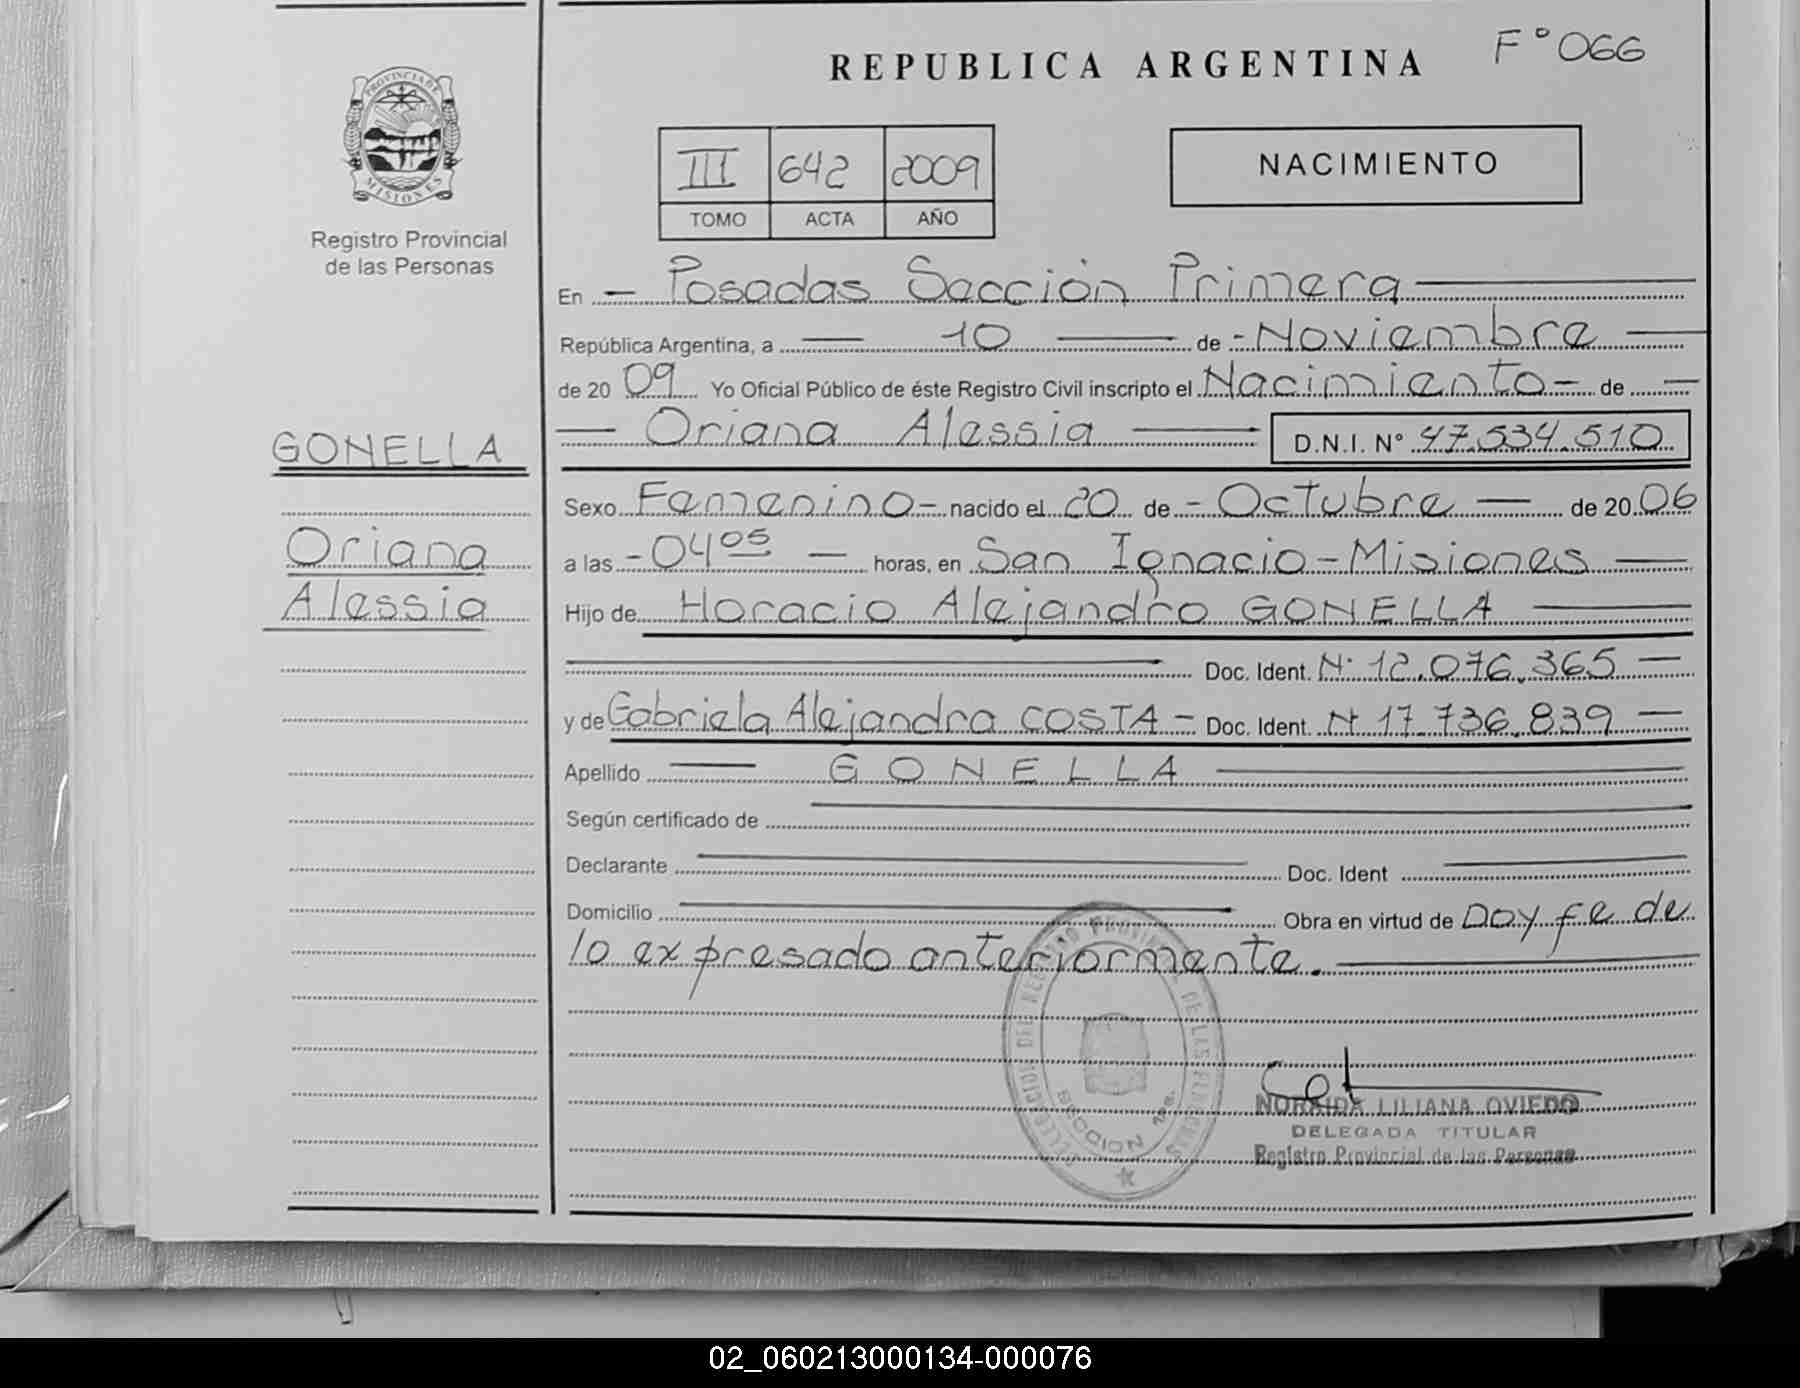 F° 066
REPUBLICA ARGENTINA
PROVINCIA DE
MISIONES
Registro Provincial
de las Personas
III 642 2009
TOMO ACTA AÑO
NACIMIENTO
En - Posadas Sección Primera
República Argentina, a 10 de - Noviembre
de 20 09 Yo Oficial Público de éste Registro Civil inscripto el Nacimiento - de
Oriana Alessia D.N.I. N° 47.534.510
GONELLA
Oriana
Alessia
Sexo Femenino - nacido el 20 de - Octubre de 20 06
a las - 04 05 horas, en San Ignacio - Misiones
Hijo de Horacio Alejandro GONELLA
Doc. Ident. N· 12.076.365
y de Gabriela Alejandra COSTA - Doc. Ident. N· 17.736.839
Apellido GONELLA
Según certificado de
Declarante Doc. Ident
Domicilio Obra en virtud de Doy fe de
lo expresado anteriormente.
DELEGACION DEL REGISTRO PROVINCIAL DE LAS PERSONAS
SECCION 1ra.
NORAIDA LILIANA OVIEDO
DELEGADA TITULAR
Registro Provincial de las Personas
02_060213000134-000076